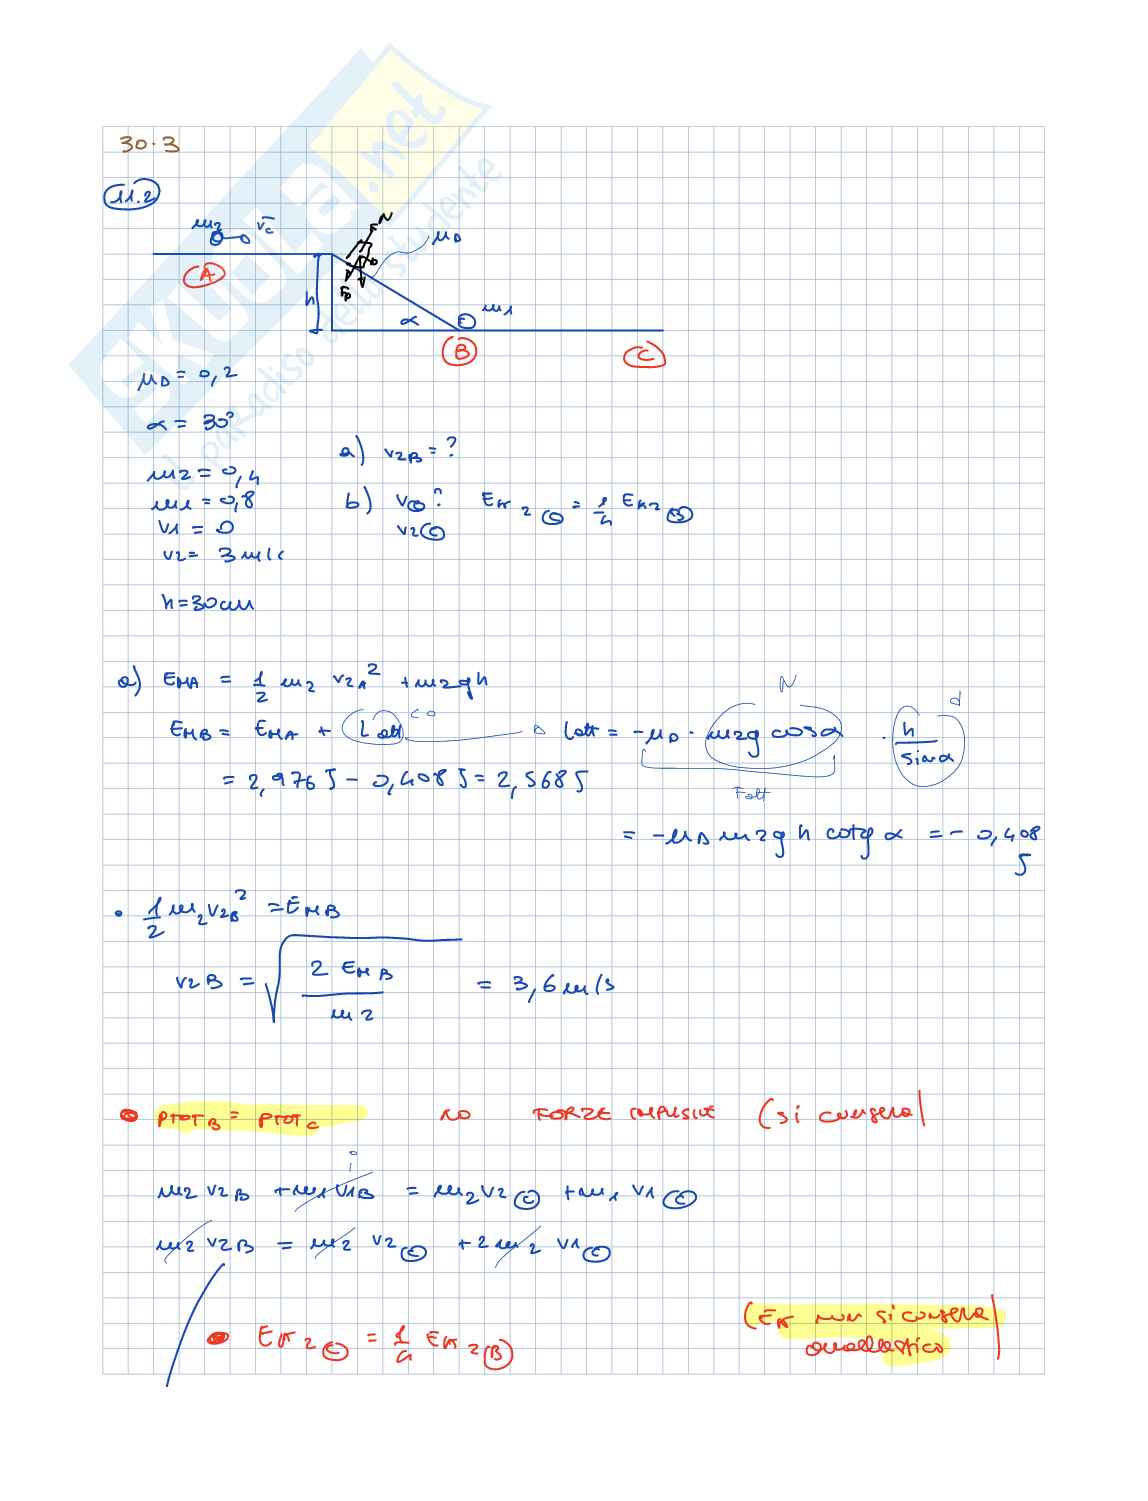 30.3
11.2
m2 v̄c
A
N
μD
h
α
m1
B
C
μD = 0,2
α = 30°
m2 = 0,4
m1 = 0,8
v1 = 0
v2 = 3 m/s
h = 30cm
a) v2B = ?
b) vC? EK2C = 1/4 EK2B
v2C
a) EMA = 1/2 m2 v2A² + m2gh
EMB = EMA + Latt → Latt = -μD · m2g cosα · h/sinα
N
d
Fatt
= 2,976 J - 0,408 J = 2,568 J
= -μD m2g h cotg α = - 0,408 J
• 1/2 m2 v2B² = EMB
v2B = √(2 EMB / m2) = 3,6 m/s
• PTOTB = PTOTC NO FORZE IMPULSIVE (si conserva)
m2 v2B + m1 v1B = m2 v2C + m1 v1C
m2 v2B = m2 v2C + 2 m2 v1C
• EK2C = 1/4 EK2B
(EK non si conserva
anaelastico)
SKUOLA.net
il paradiso dello studente